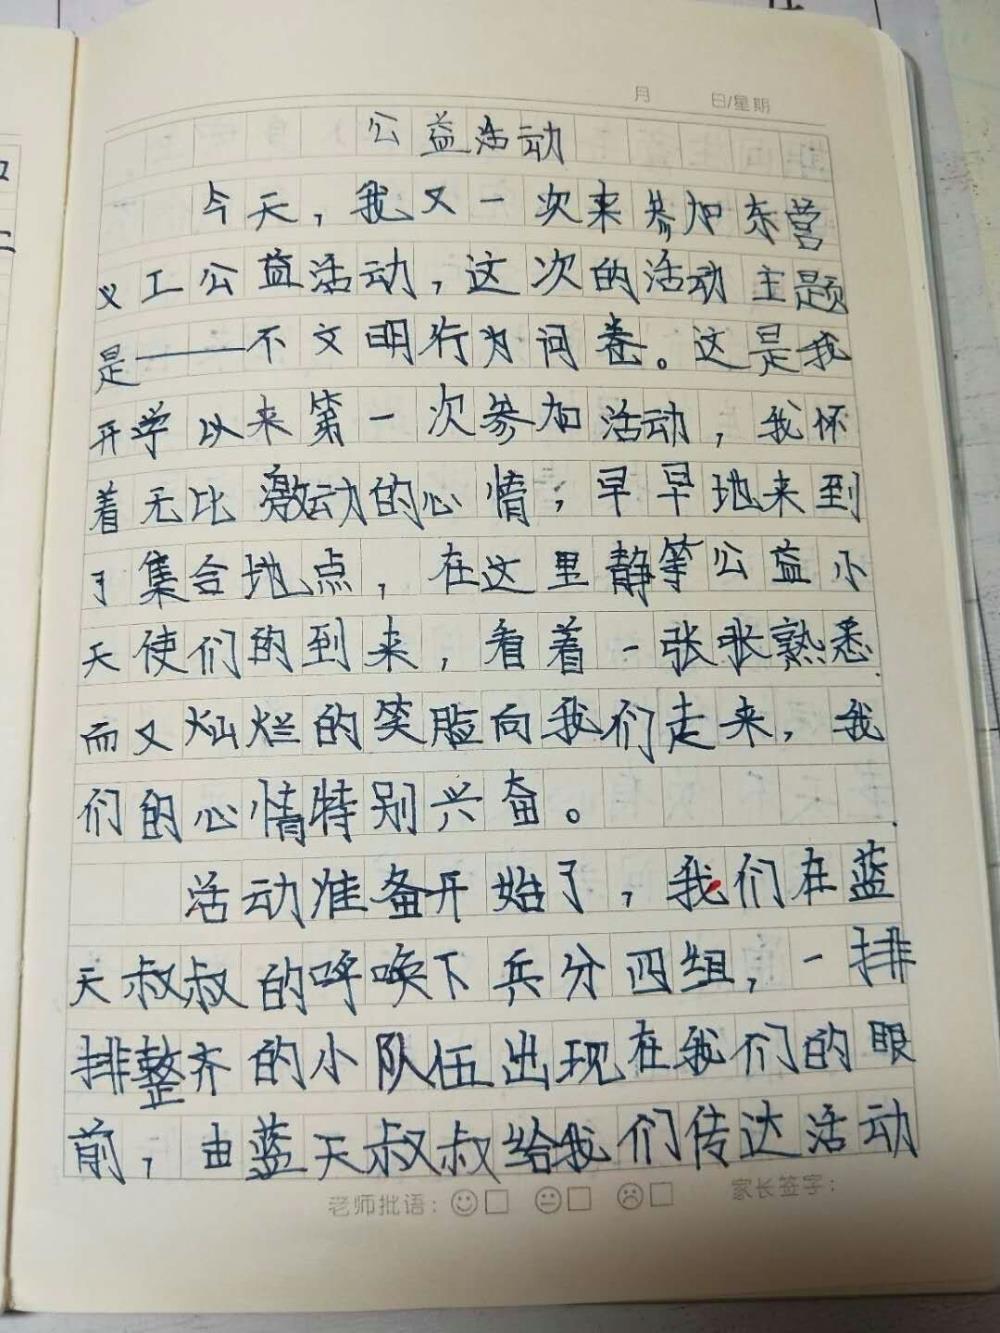 月 日/星期
公益活动
今天，我又一次来参加东营
义工公益活动，这次的活动主题
是——不文明行为问卷。这是我
开学以来第一次参加活动，我怀
着无比激动的心情，早早地来到
了集合地点，在这里静等公益小
天使们的到来，看着一张张熟悉
而又灿烂的笑脸向我们走来，我
们的心情特别兴奋。
活动准备开始了，我们在蓝
天叔叔的呼唤下兵分四组，一排
排整齐的小队伍出现在我们的眼
前，由蓝天叔叔给我们传达活动
老师批语： 家长签字：